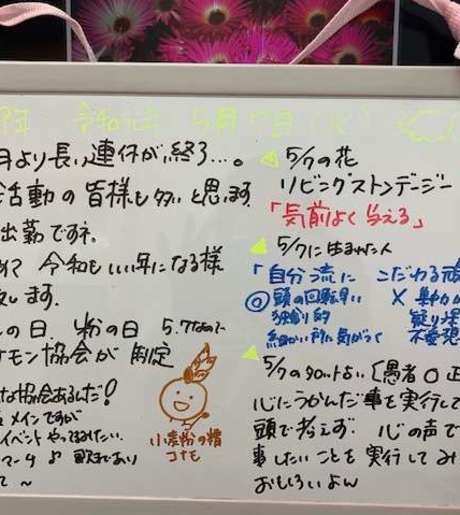 令和元年 5月7日(火)
月より長い連休が終了…。
活動の皆様も多いと思います
出勤ですネ。
令和もいい年になる様
します。
の日 粉の日 5.7なので
モン協会が制定
な協会あるんだ!
メインですが
イベントやってるみたい。
マーク♪ 歌まであり
て~
小麦粉の精
コナモ
5/7の花
リビングストンデージー
「気前よく与える」
5/7に生まれた人
「自分流に こだわる頑
◎頭の回転早い
独創的
細かい所に気がつく
×
5/7のタロット占い〔愚者○正
心にうかんだ事を実行して
頭で考えず 心の声で
事したいことを実行してみ
おもしろいよん